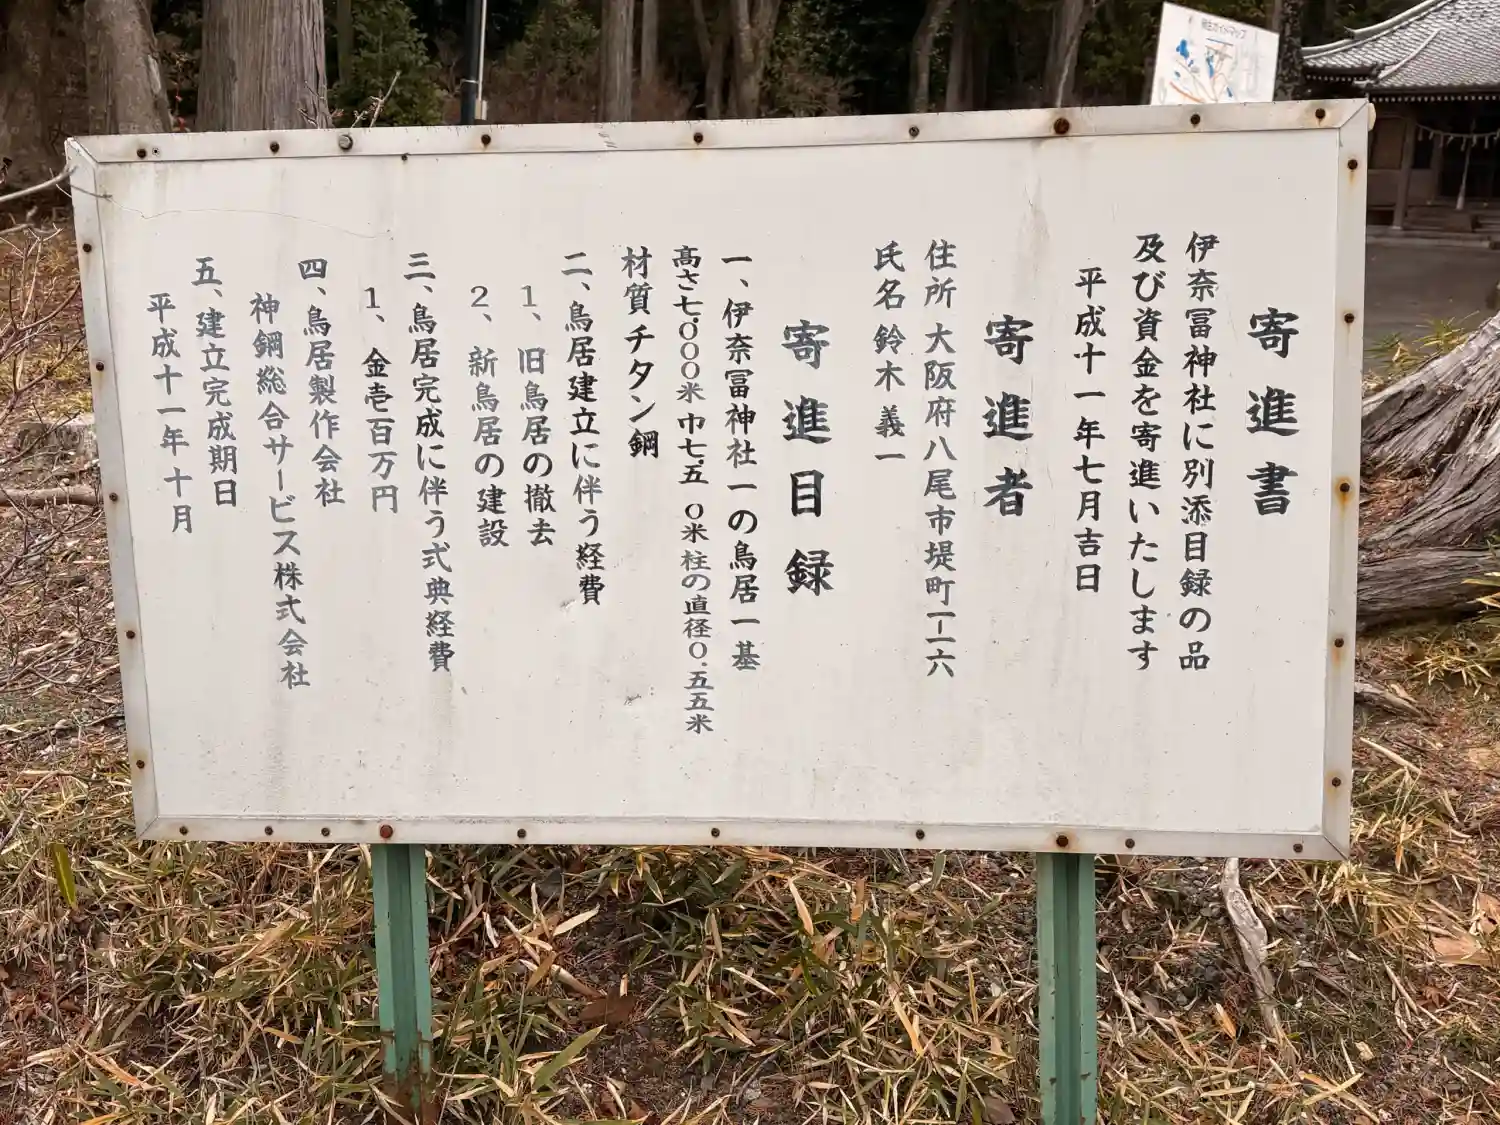 寄進書
伊奈冨神社に別添目録の品
及び資金を寄進いたします
平成十一年七月吉日
寄進者
住所 大阪府八尾市堤町一ー二六
氏名 鈴木義一
寄進目録
一、伊奈冨神社一の鳥居一基
高さ七.〇〇〇米 巾七.五〇米 柱の直径〇.五五米
材質チタン鋼
二、鳥居建立に伴う経費
1、旧鳥居の撤去
2、新鳥居の建設
三、鳥居完成に伴う式典経費
1、金壱百万円
四、鳥居製作会社
神鋼総合サービス株式会社
五、建立完成期日
平成十一年十月